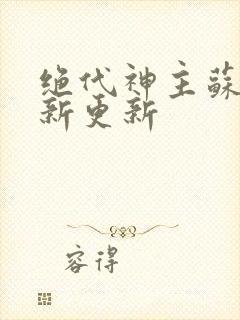 绝代神主蘇
新更新
容得